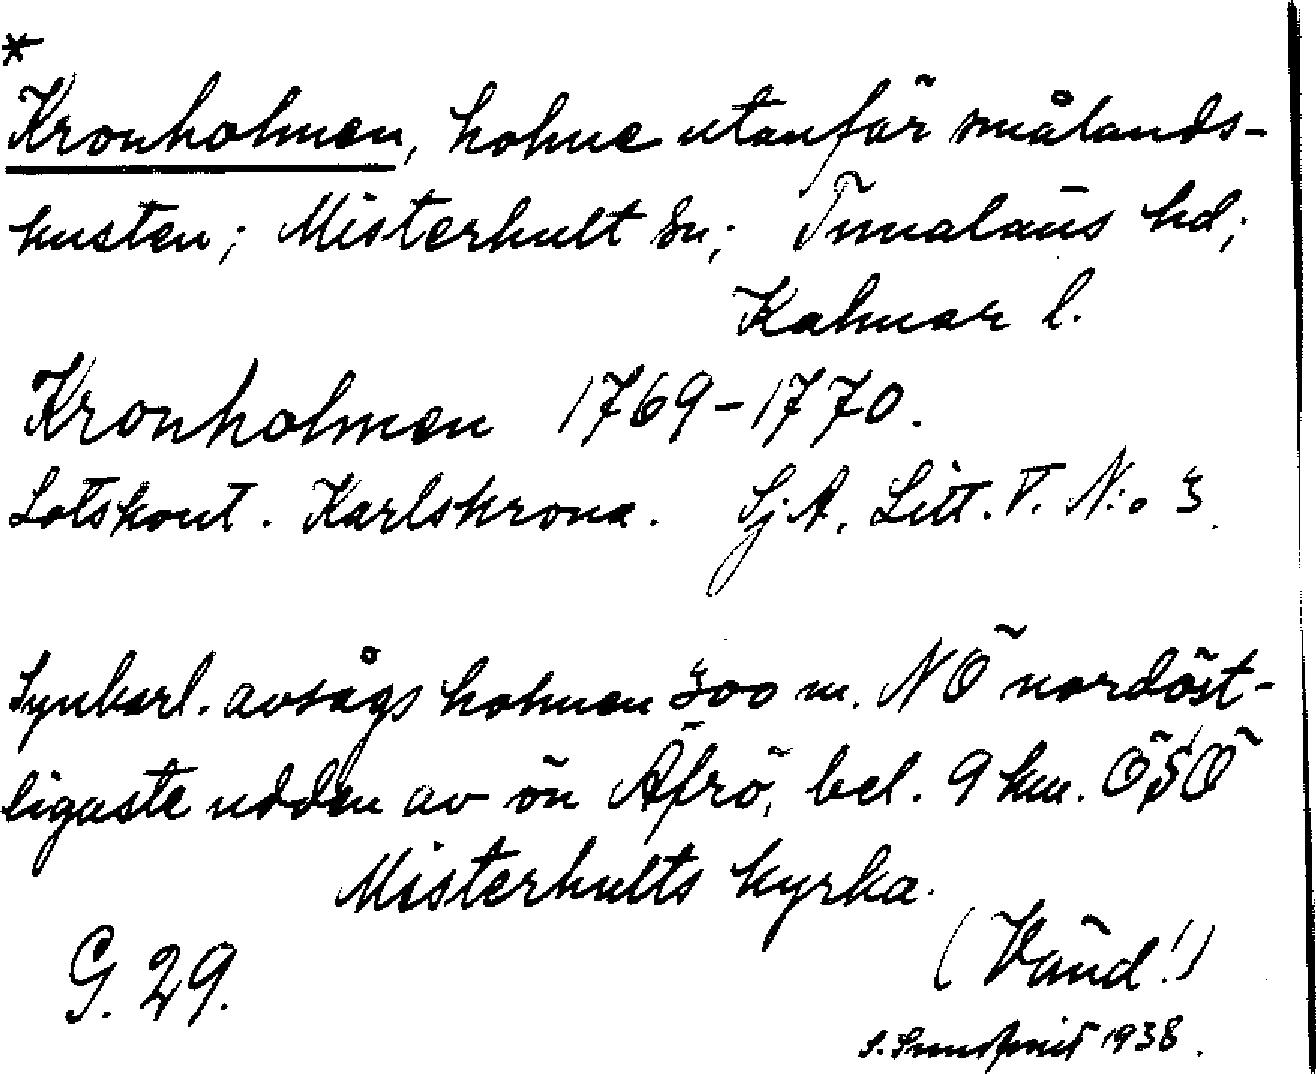 *
Kronholmen, holme utanför smålands-
kusten; Misterhult sn; Tunaläns hd;
Kalmar l.
Kronholmen 1769-1770.
Lotskont. Karlskrona. Sj A. Litt. V. N:o 3.
Synbarl. avsågs holmen 300 m. NÖ nordöst-
ligaste udden av ön Äfrö, bel. 9 km. ÖSÖ
Misterhults kyrka.
(Vänd!)
G. 29.
1938.